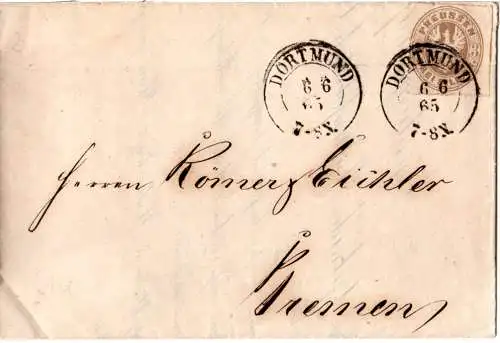 PREUSSEN
DORTMUND
6 6
65
7-8X.
DORTMUND
6 6
65
7-8X
Herren Römer & Eichler
Bremen